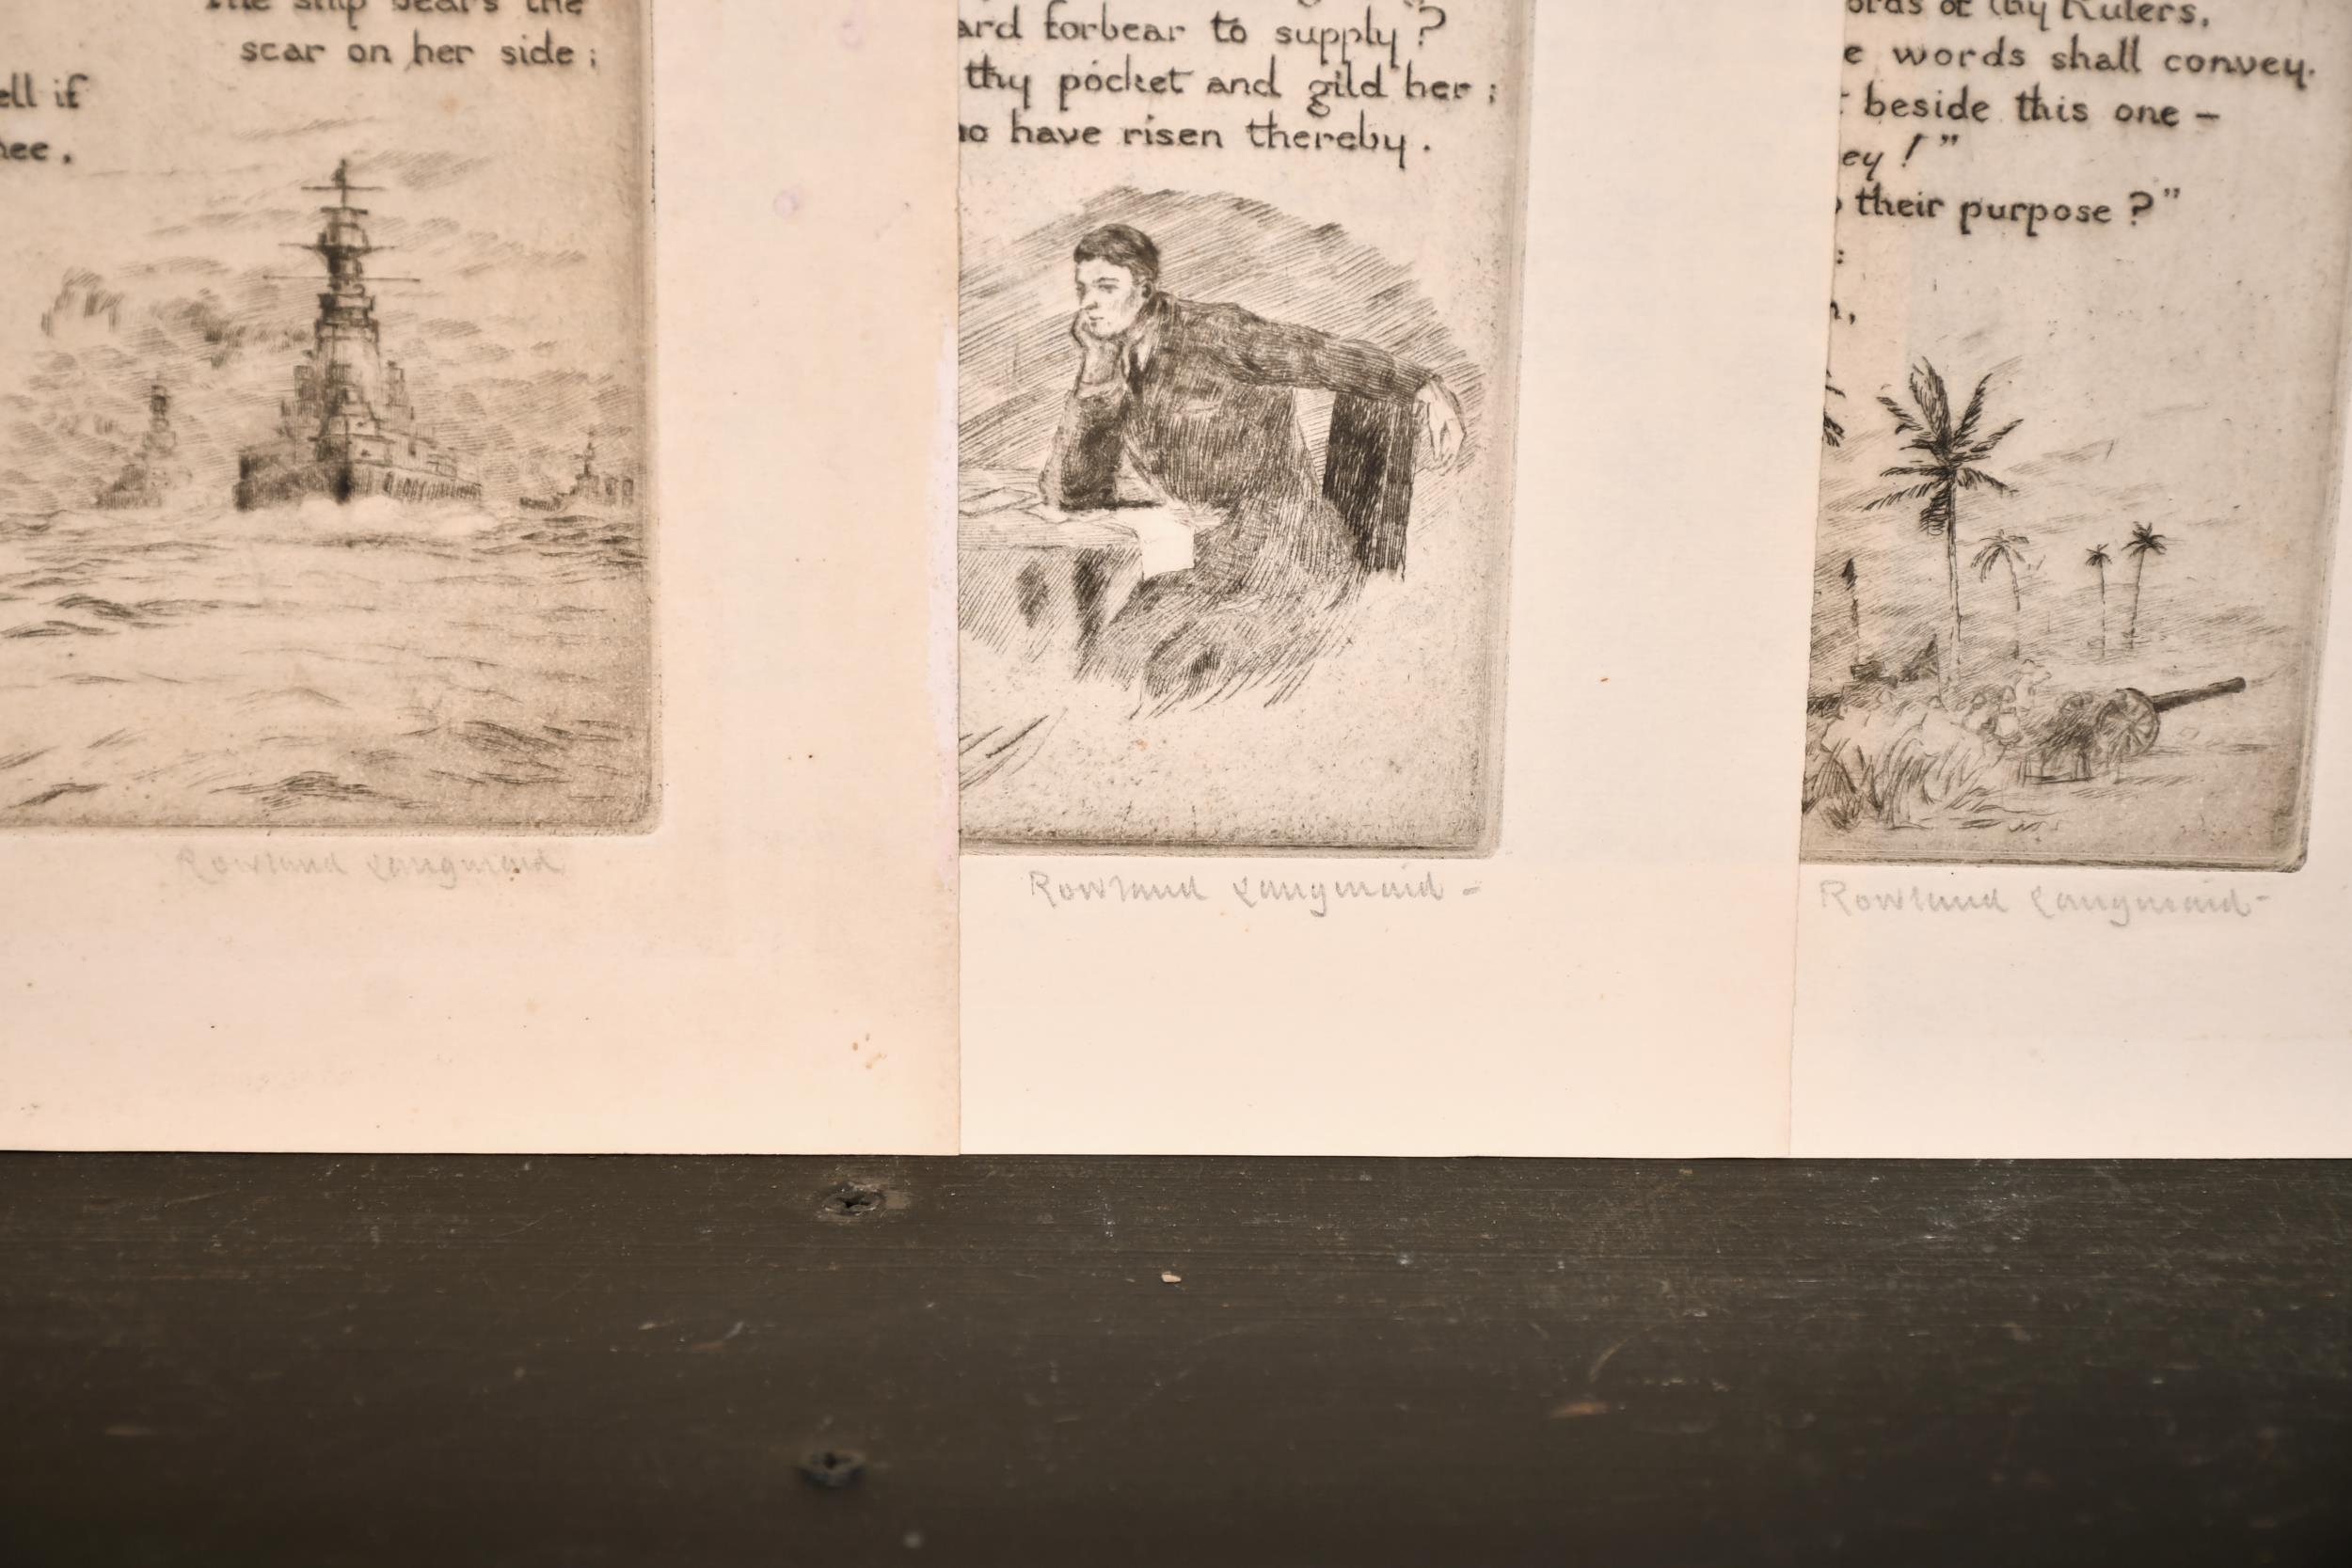 The ship bears the
scar on her side;
ell if
hee.
Rowland Langmaid
ard forbear to supply?
thy pocket and gild her;
ho have risen thereby.
Rowland Langmaid -
ords of thy Rulers,
e words shall convey.
beside this one —
ey!"
their purpose?"
Rowland Langmaid -